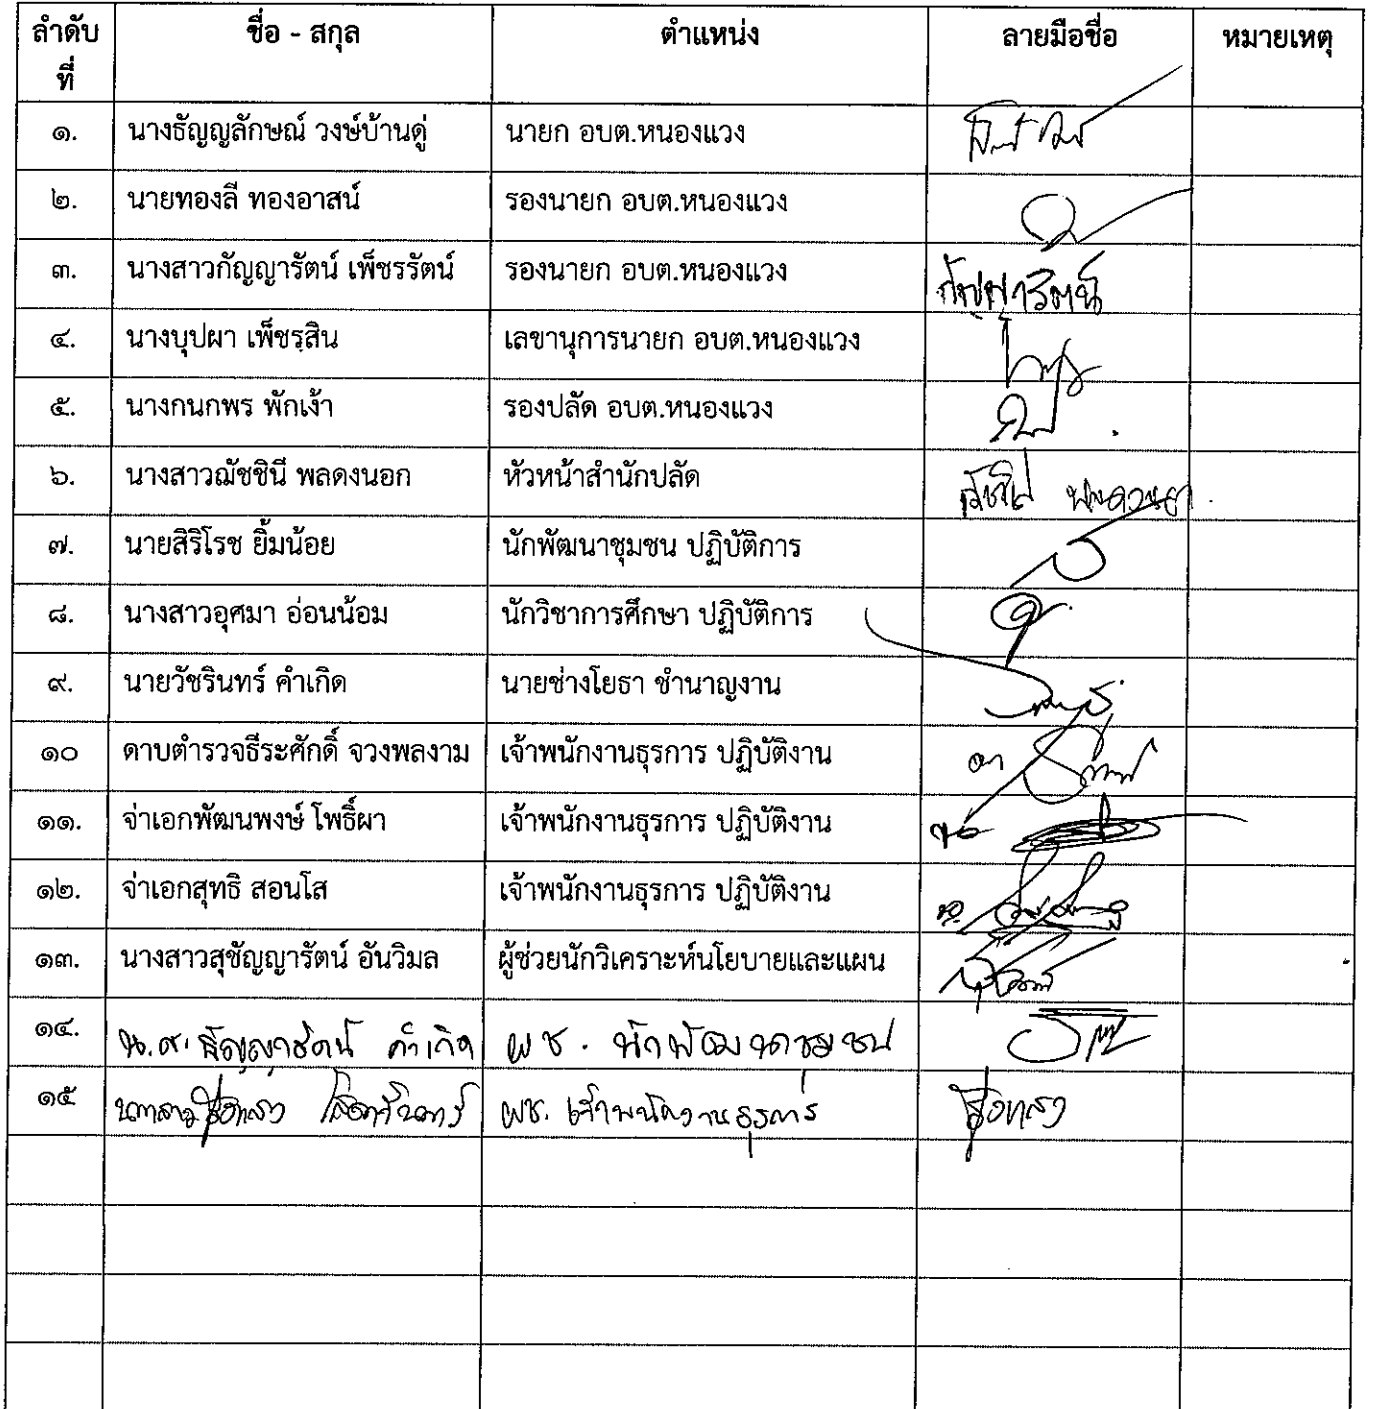 ลำดับที่ ชื่อ - สกุล ตำแหน่ง ลายมือชื่อ หมายเหตุ
๑. นางธัญญลักษณ์ วงษ์บ้านดู่ นายก อบต.หนองแวง
๒. นายทองลี ทองอาสน์ รองนายก อบต.หนองแวง
๓. นางสาวกัญญารัตน์ เพ็ชรรัตน์ รองนายก อบต.หนองแวง กัญญารัตน์
๔. นางบุปผา เพ็ชรสิน เลขานุการนายก อบต.หนองแวง
๕. นางกนกพร พักเง้า รองปลัด อบต.หนองแวง
๖. นางสาวณัชชินี พลดงนอก หัวหน้าสำนักปลัด
๗. นายสิริโรช ยิ้มน้อย นักพัฒนาชุมชน ปฏิบัติการ
๘. นางสาวอุศมา อ่อนน้อม นักวิชาการศึกษา ปฏิบัติการ
๙. นายวัชรินทร์ คำเกิด นายช่างโยธา ชำนาญงาน
๑๐ ดาบตำรวจธีระศักดิ์ จวงพลงาม เจ้าพนักงานธุรการ ปฏิบัติงาน
๑๑. จ่าเอกพัฒนพงษ์ โพธิ์ผา เจ้าพนักงานธุรการ ปฏิบัติงาน
๑๒. จ่าเอกสุทธิ สอนโส เจ้าพนักงานธุรการ ปฏิบัติงาน
๑๓. นางสาวสุชัญญารัตน์ อันวิมล ผู้ช่วยนักวิเคราะห์นโยบายและแผน
๑๔. น.ส. คำเกิด ผช. นักพัฒนาชุมชน
๑๕ นางสาว ผช. เจ้าพนักงานธุรการ